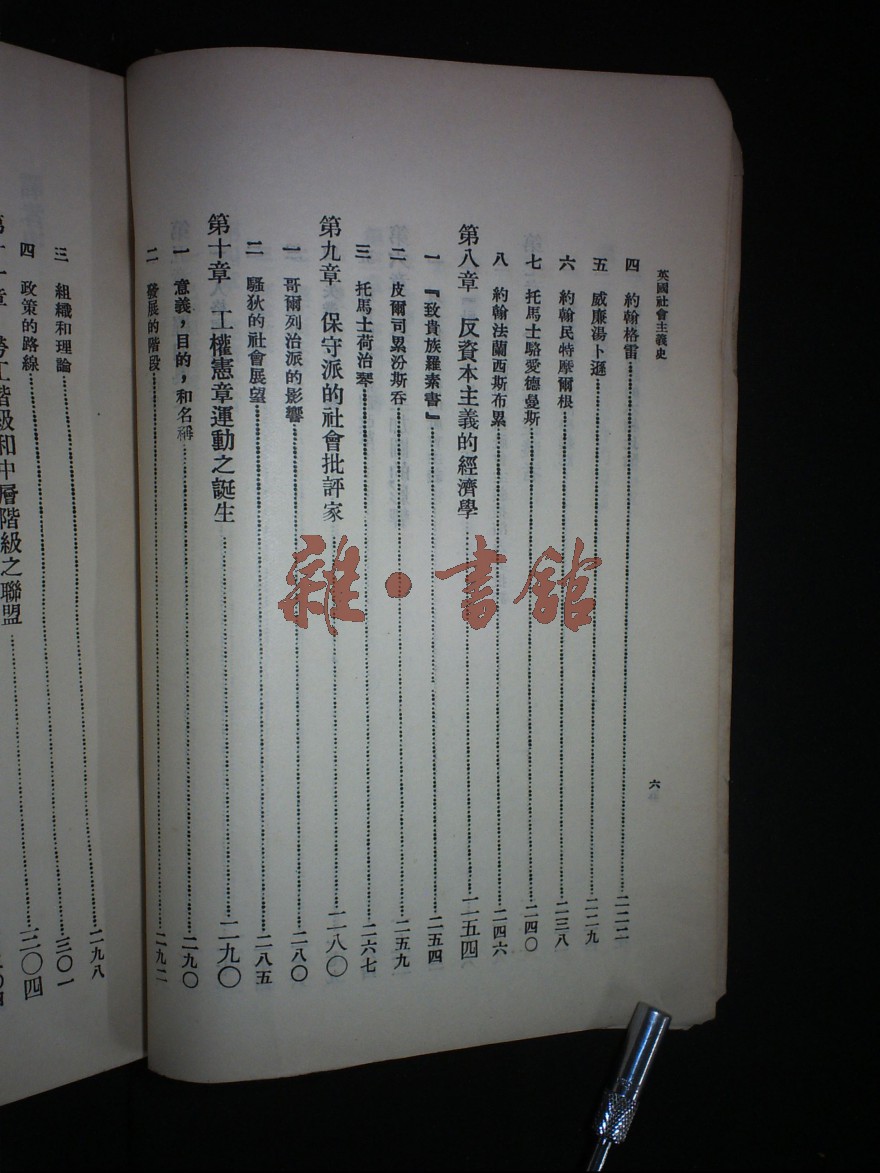 英國社會主義史
六
四 約翰格雷……二二二
五 威廉湯卜遜……二二九
六 約翰民特摩爾根……二三八
七 托馬士駱愛德曼斯……二四〇
八 約翰法蘭西斯布累……二四六
第八章 反資本主義的經濟學……二五四
一 『致貴族羅素書』……二五四
二 皮爾司累汾斯吞……二五九
三 托馬士荷治琴……二六七
第九章 保守派的社會批評家……二八〇
一 哥爾列治派的影響……二八〇
二 騷狄的社會展望……二八五
第十章 工權憲章運動之誕生……二九〇
一 意義，目的，和名稱……二九〇
二 發展的階段……二九二
三 組織和理論……二九八
四 政策的路線……三〇一
階級和中層階級之聯盟……三〇四
雜·書館